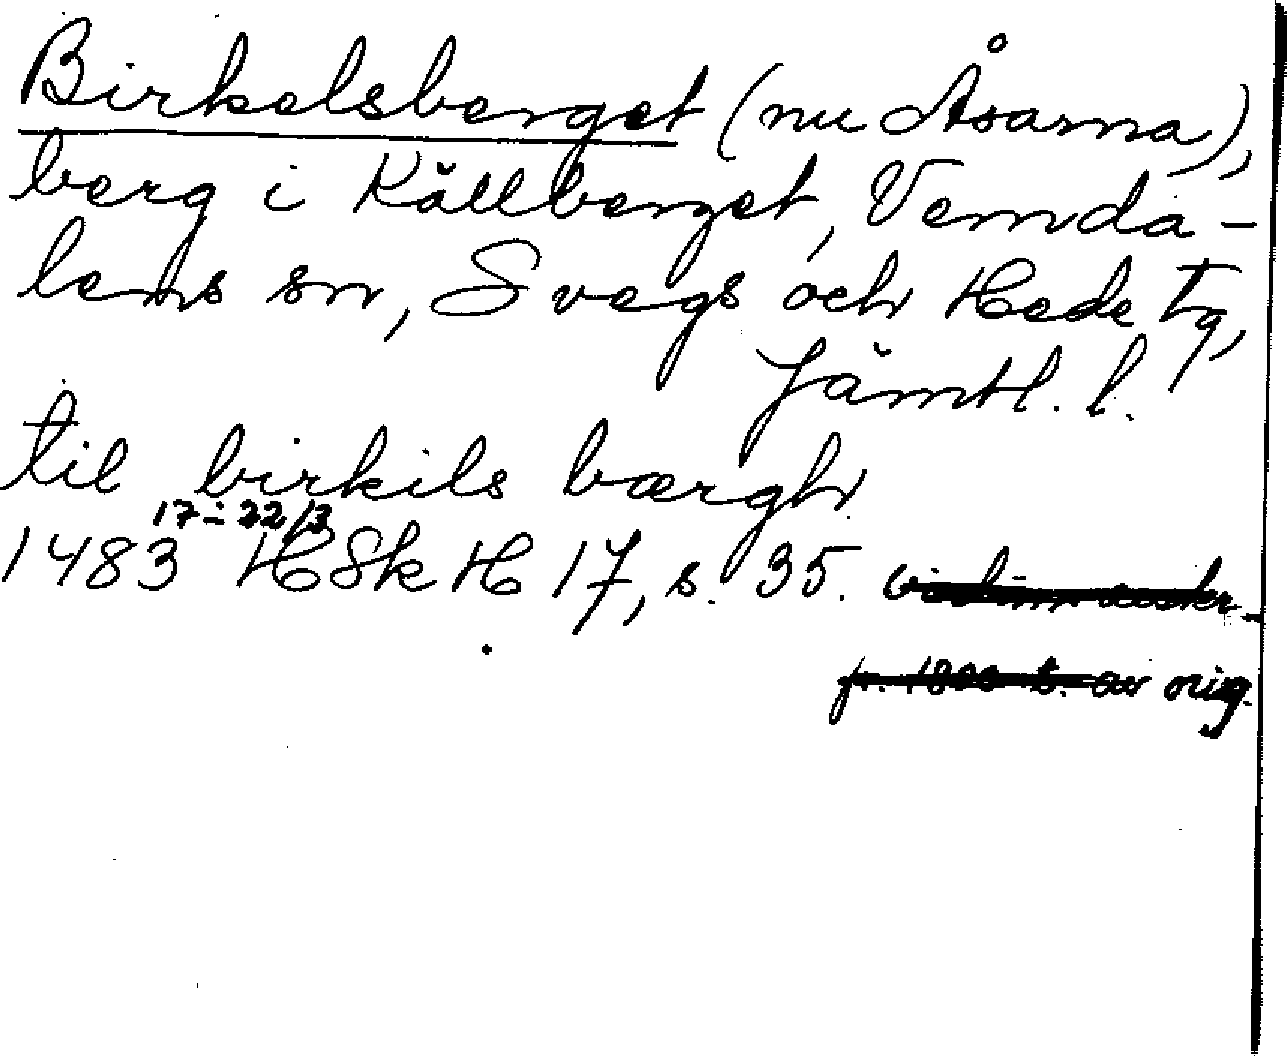 Birkelsberget (nu Åsarna),
berg i Källberget, Vemda-
lens sn, Svegs och Hede tg,
Jämtl. l.
til birkils bærgh
17-22/3
1483 HSkH 17, s. 35.
av orig.